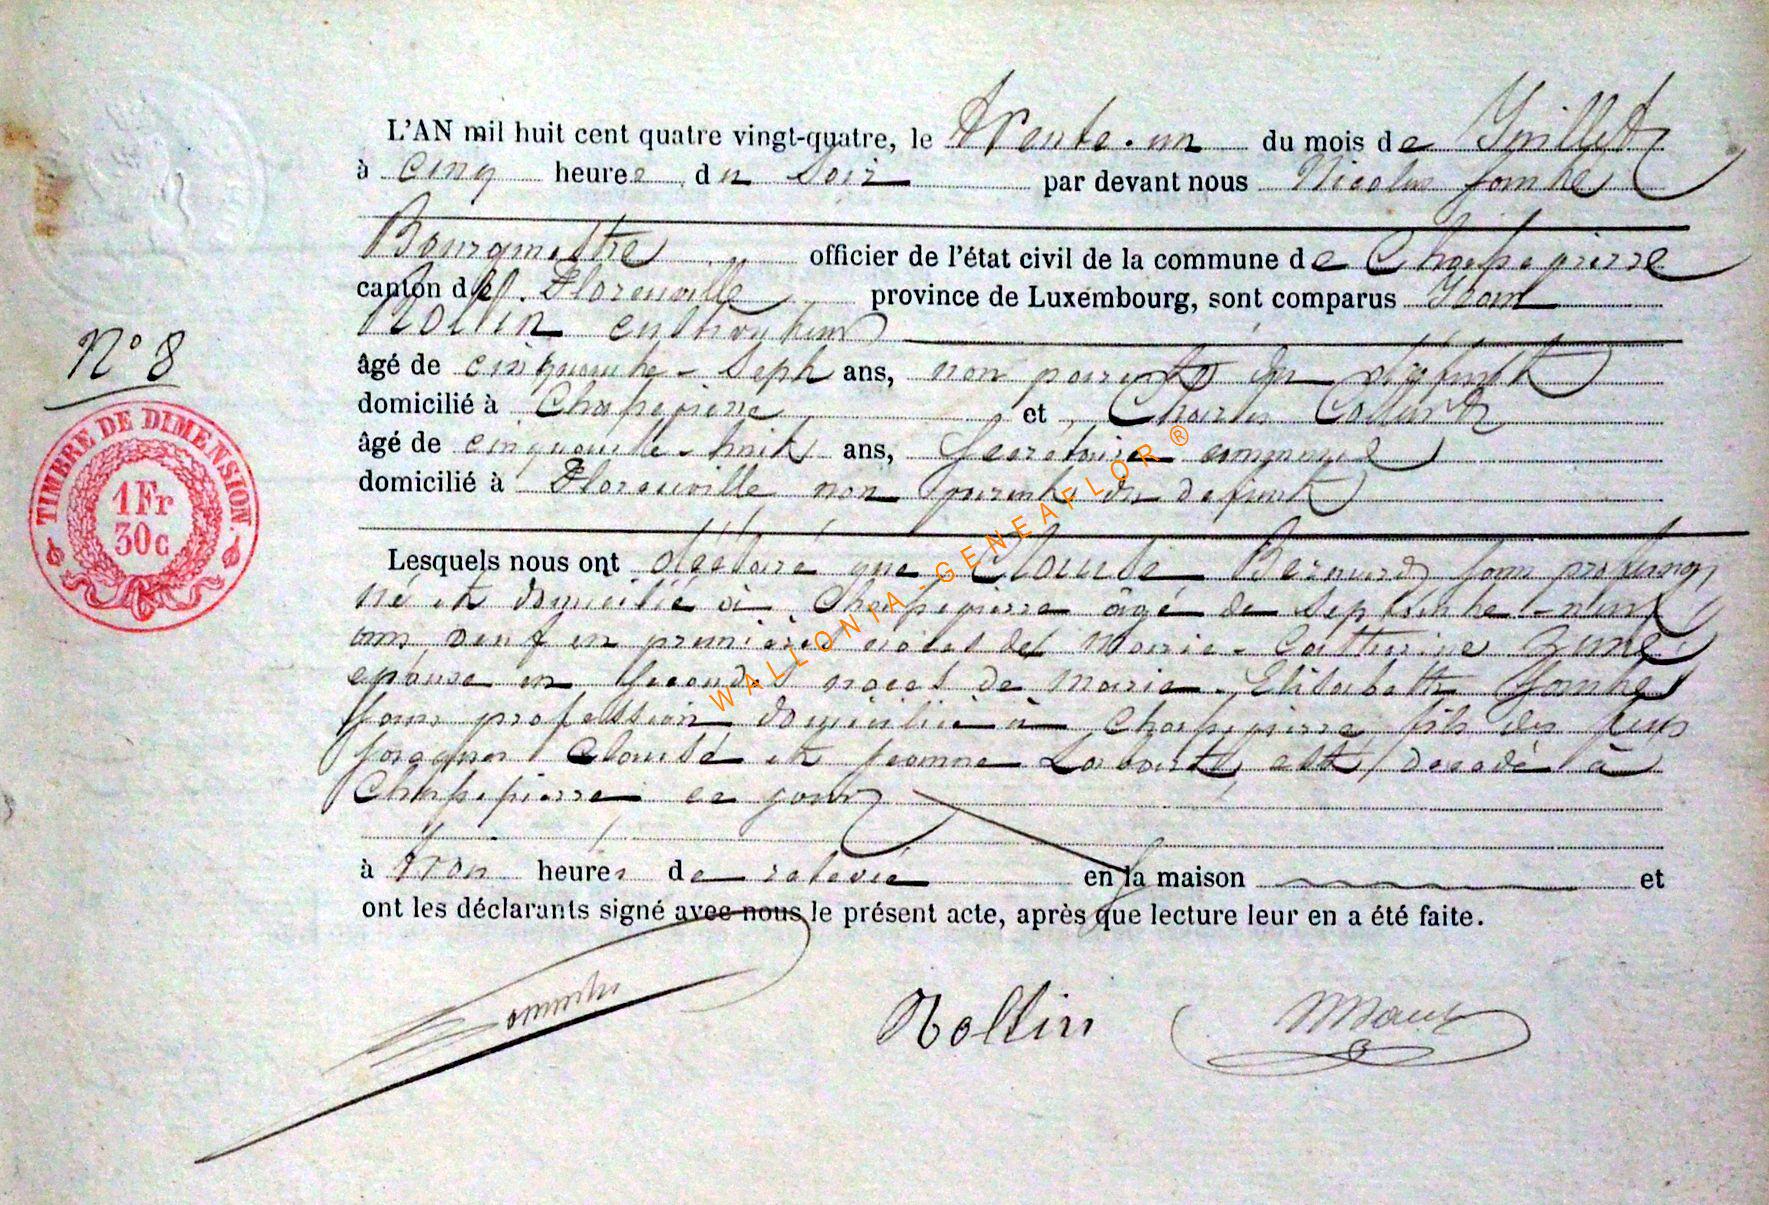 L'AN mil huit cent quatre vingt-quatre, le trente-un du mois de Juillet
à cinq heures du Soir par devant nous Nicolas
Bourgmestre officier de l'état civil de la commune de Chassepierre
canton de Florenville province de Luxembourg, sont comparus
Rollin cultivateur
N° 8
âgé de cinquante-sept ans, non parent du défunt
domicilié à Chassepierre et Charles
âgé de cinquante-huit ans, Secrétaire communal
domicilié à Florenville non parent du defunt
TIMBRE DE DIMENSION
1Fr
30c
Lesquels nous ont déclaré que Claude Bernard sans profession
né et domicilié à Chassepierre âgé de septante-neuf
ans veuf en premières noces de Marie-Catherine
époux en secondes noces de Marie-Elisabeth
sans profession domiciliée à Chassepierre fils des feus
Jacques Claude et Jeanne est décédé à
Chassepierre ce jour
à trois heures de relevée en la maison et
ont les déclarants signé avec nous le présent acte, après que lecture leur en a été faite.
Rollin
WALLONIA-GENEAFLOR ®